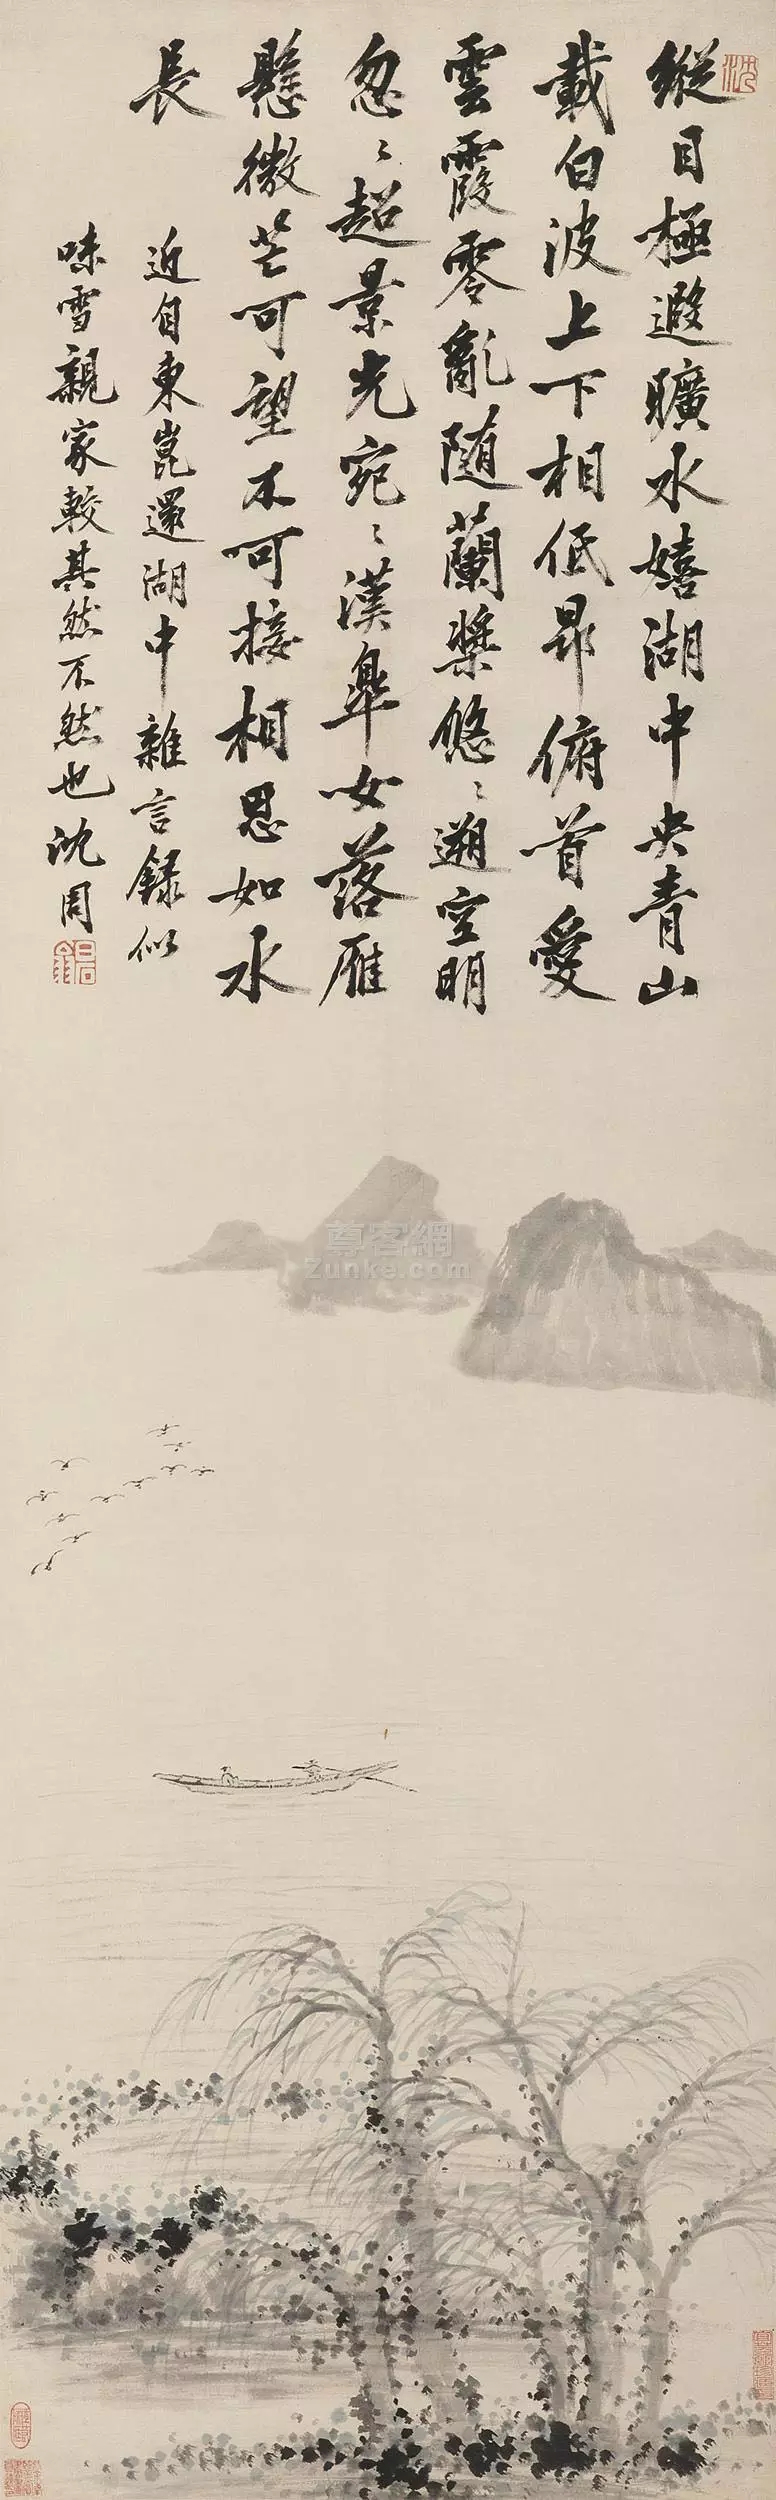 縱目極遐曠水嬉湖中央青山
載白波上下相低昂俯首愛
雲霞零亂隨蘭槳悠〻遡空明
忽〻超景光宛〻漢皐女落雁
懸微茫可望不可接相思如水
長
近自東崑還湖中雜言錄似
味雪親家較其然不然也沈周
尊客網
Zunke.com